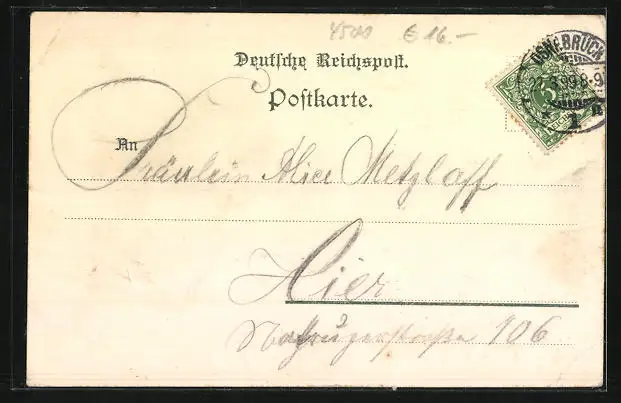 € 16.-
Deutsche Reichspost.
Postkarte.
OSNABRÜCK
An
Fräulein Alice Metzlaff
Hier
106